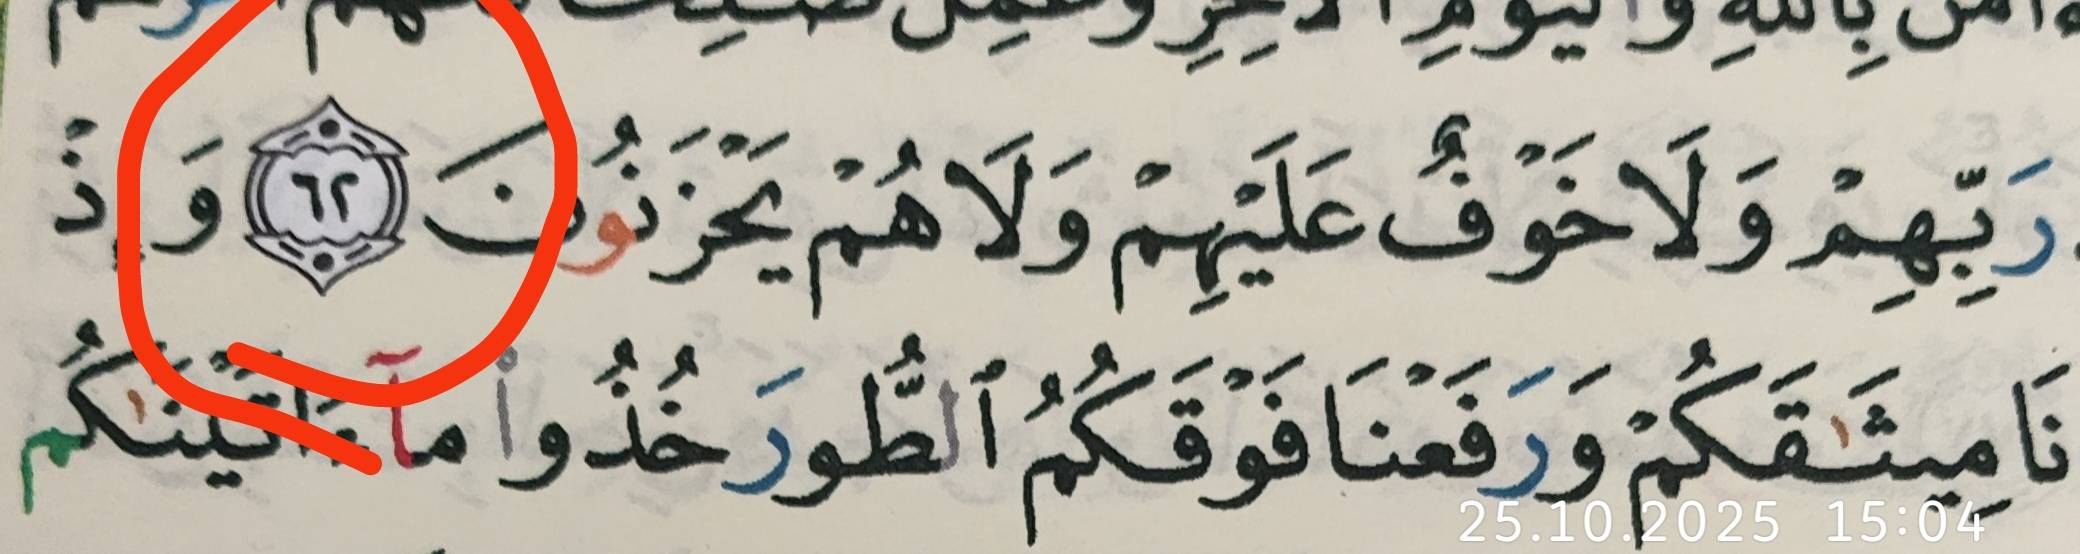 ءَامَنَ بِٱللَّهِ وَٱلْيَوْمِ ٱلْءَاخِرِ وَعَمِلَ صَٰلِحًا فَلَهُمْ
رَبِّهِمْ وَلَا خَوْفٌ عَلَيْهِمْ وَلَا هُمْ يَحْزَنُونَ ٦٢ وَإِذْ
نَا مِيثَٰقَكُمْ وَرَفَعْنَا فَوْقَكُمُ ٱلطُّورَ خُذُوا۟ مَآ ءَاتَيْنَٰكُم
25.10.2025 15:04